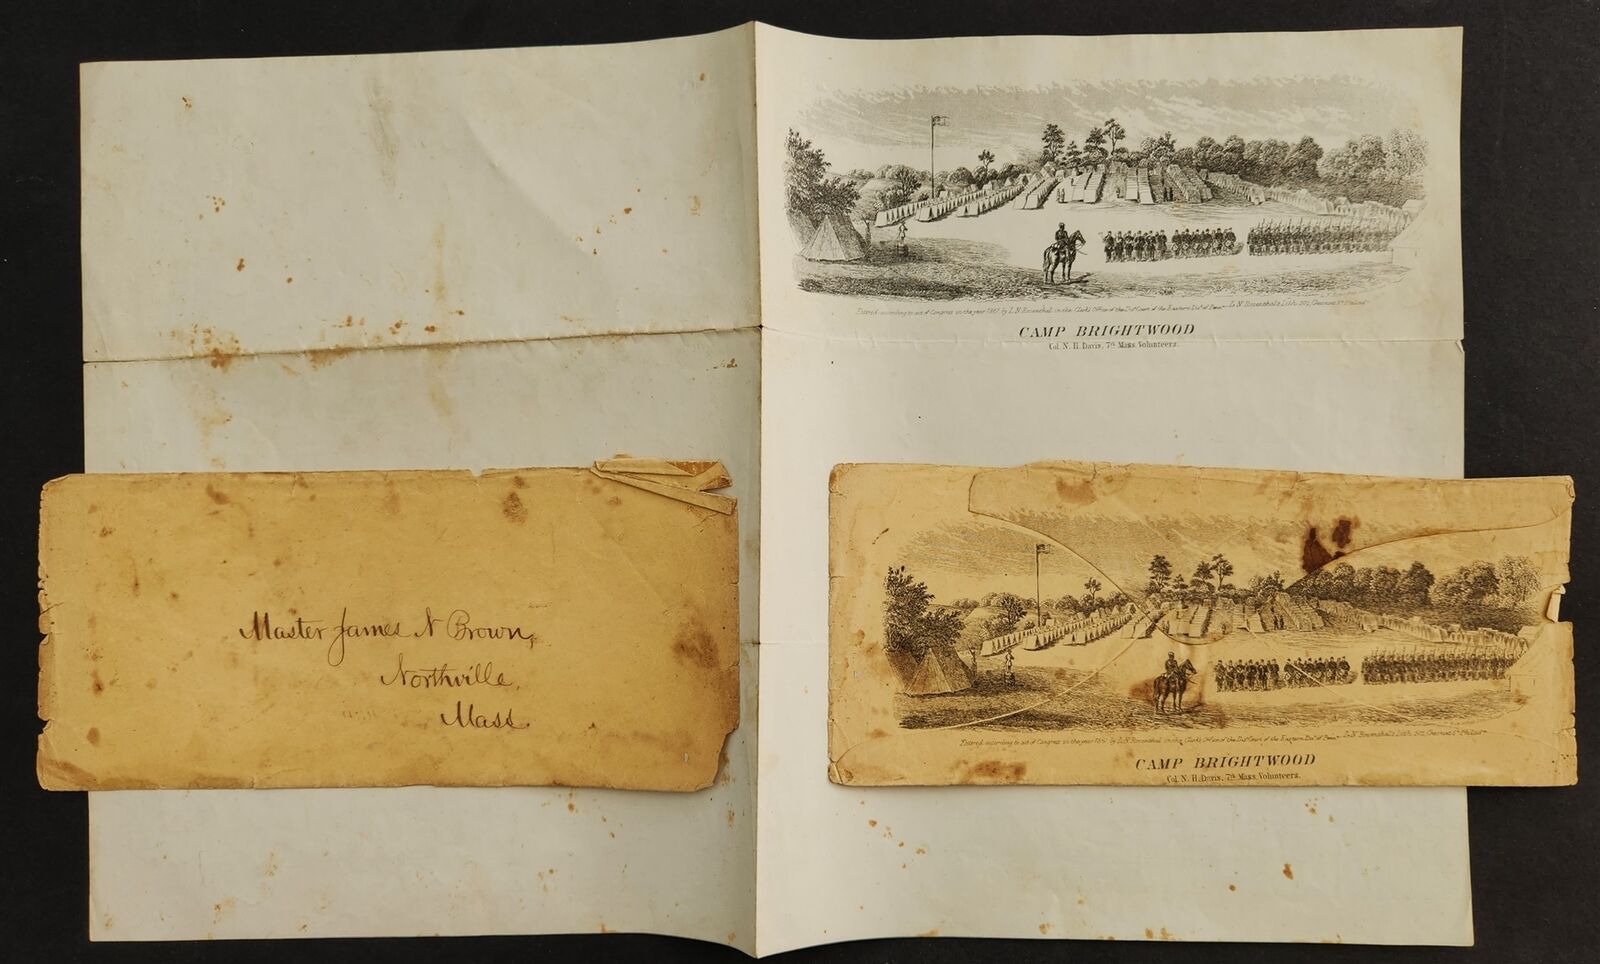 Entered according to act of Congress in the year 1861 by L. N. Rosenthal in the Clerks Office of the Dist. Court of the Eastern Dist. of Penn. L. N. Rosenthal's Lith. 502, Chesnut St. Philada.
CAMP BRIGHTWOOD
Col. N. H. Davis, 7th Mass. Volunteers.
Master James N Brown,
Northville,
Mass.
Entered according to act of Congress in the year 1861 by L. N. Rosenthal in the Clerks Office of the Dist. Court of the Eastern Dist. of Penn. L. N. Rosenthal's Lith. 502, Chesnut St. Philada.
CAMP BRIGHTWOOD
Col. N. H. Davis, 7th Mass. Volunteers.